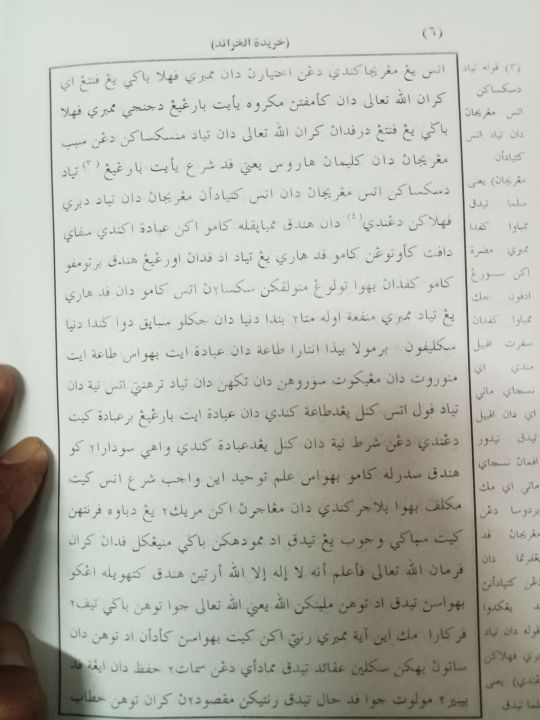 (٦)
(خريدة الخرائد)
اتس يڠ مڠرجاكندي دڠن اختيارڽ دان ممبري فهلا باكي يڠ فنتڠ اي
كران الله تعالى دان كأمفتن مكروه يأيت بارڠيڠ دجنجي ممبري فهلا
باكي يڠ فنتڠ درفدان كران الله تعالى دان تياد منسكساكن دڠن سبب
مڠرجاڽ دان كليمان هاروس يعني فد شرع يأيت بارڠيڠ (٣) تياد
دسكساكن اتس مڠرجاڽ دان اتس كتيادأن مڠرجاڽ دان تياد دبري
فهلاكن دڠندي (٤) دان هندق ممبايقله كامو اكن عبادة اكندي سفاي
دافت كأونتوڠن كامو فد هاري يڠ تياد اد فدان اورڠيڠ هندق برتومفو
كامو كفدان بهوا تولوڠ منولقكن سكسا٢ن اتس كامو دان فد هاري
يڠ تياد ممبري منفعة اوله متا٢ بندا دنيا دان جكلو سبايق دوا كندا دنيا
سكليفون برمولا بيذا انتارا طاعة دان عبادة ايت بهواس طاعة ايت
منوروت دان مڠيكوت سوروهن دان تكهن دان تياد ترهنتي اتس نية دان
تياد فول اتس كنل يڠدطاعة كندي دان عبادة ايت بارڠيڠ برعبادة كيت
دڠندي دڠن شرط نية دان كنل يڠدعبادة كندي واهي سودارا٢ كو
هندق سدرله كامو بهواس علم توحيد اين واجب شرع اتس كيت
مكلف بهوا بلاجركندي دان مڠاجرن اكن مريك٢ يڠ دباوه فرنتهن
كيت سباكي وجوب يڠ تيدق اد ممودهكن باكي منيڠكل فدان كران
فرمان الله تعالى فأعلم أنه لا إله إلا الله أرتين هندق كتهويله اڠكو
بهواسن تيدق اد توهن ملينكن الله يعني الله تعالى جوا توهن باكي تيف٢
فركارا مك اين آية ممبري رتي اكن كيت بهواسن كأدأن اد توهن دان
ساتون بهكن سكلين عقائد تيدق ممادأي دڠن سمات٢ حفظ دان ايڠة فد
بيبير٢ مولوت جوا فد حال تيدق رتيكن مقصود٢ن كران توهن خطاب
(٣) قوله تياد
دسكساكن
اتس مڠرجان
دان تياد اتس
كتيادأن
مڠرجان) يعنى
سلما تيدق
ممباوا كفدا
ممبري مضرة
اكن سسورڠ
ادفون جك
ممباوا كفدان
سفرت افبيل
مندي اي
نسجاي ماتي
اي دان افبيل
تيدق تيدور
نسجاي
ماتي اي مك
بردوسا دڠن
مڠرجان فد
دان
دڠن كتيادأن
قوله دان تياد
فهلاكن
يعنى
تيدق